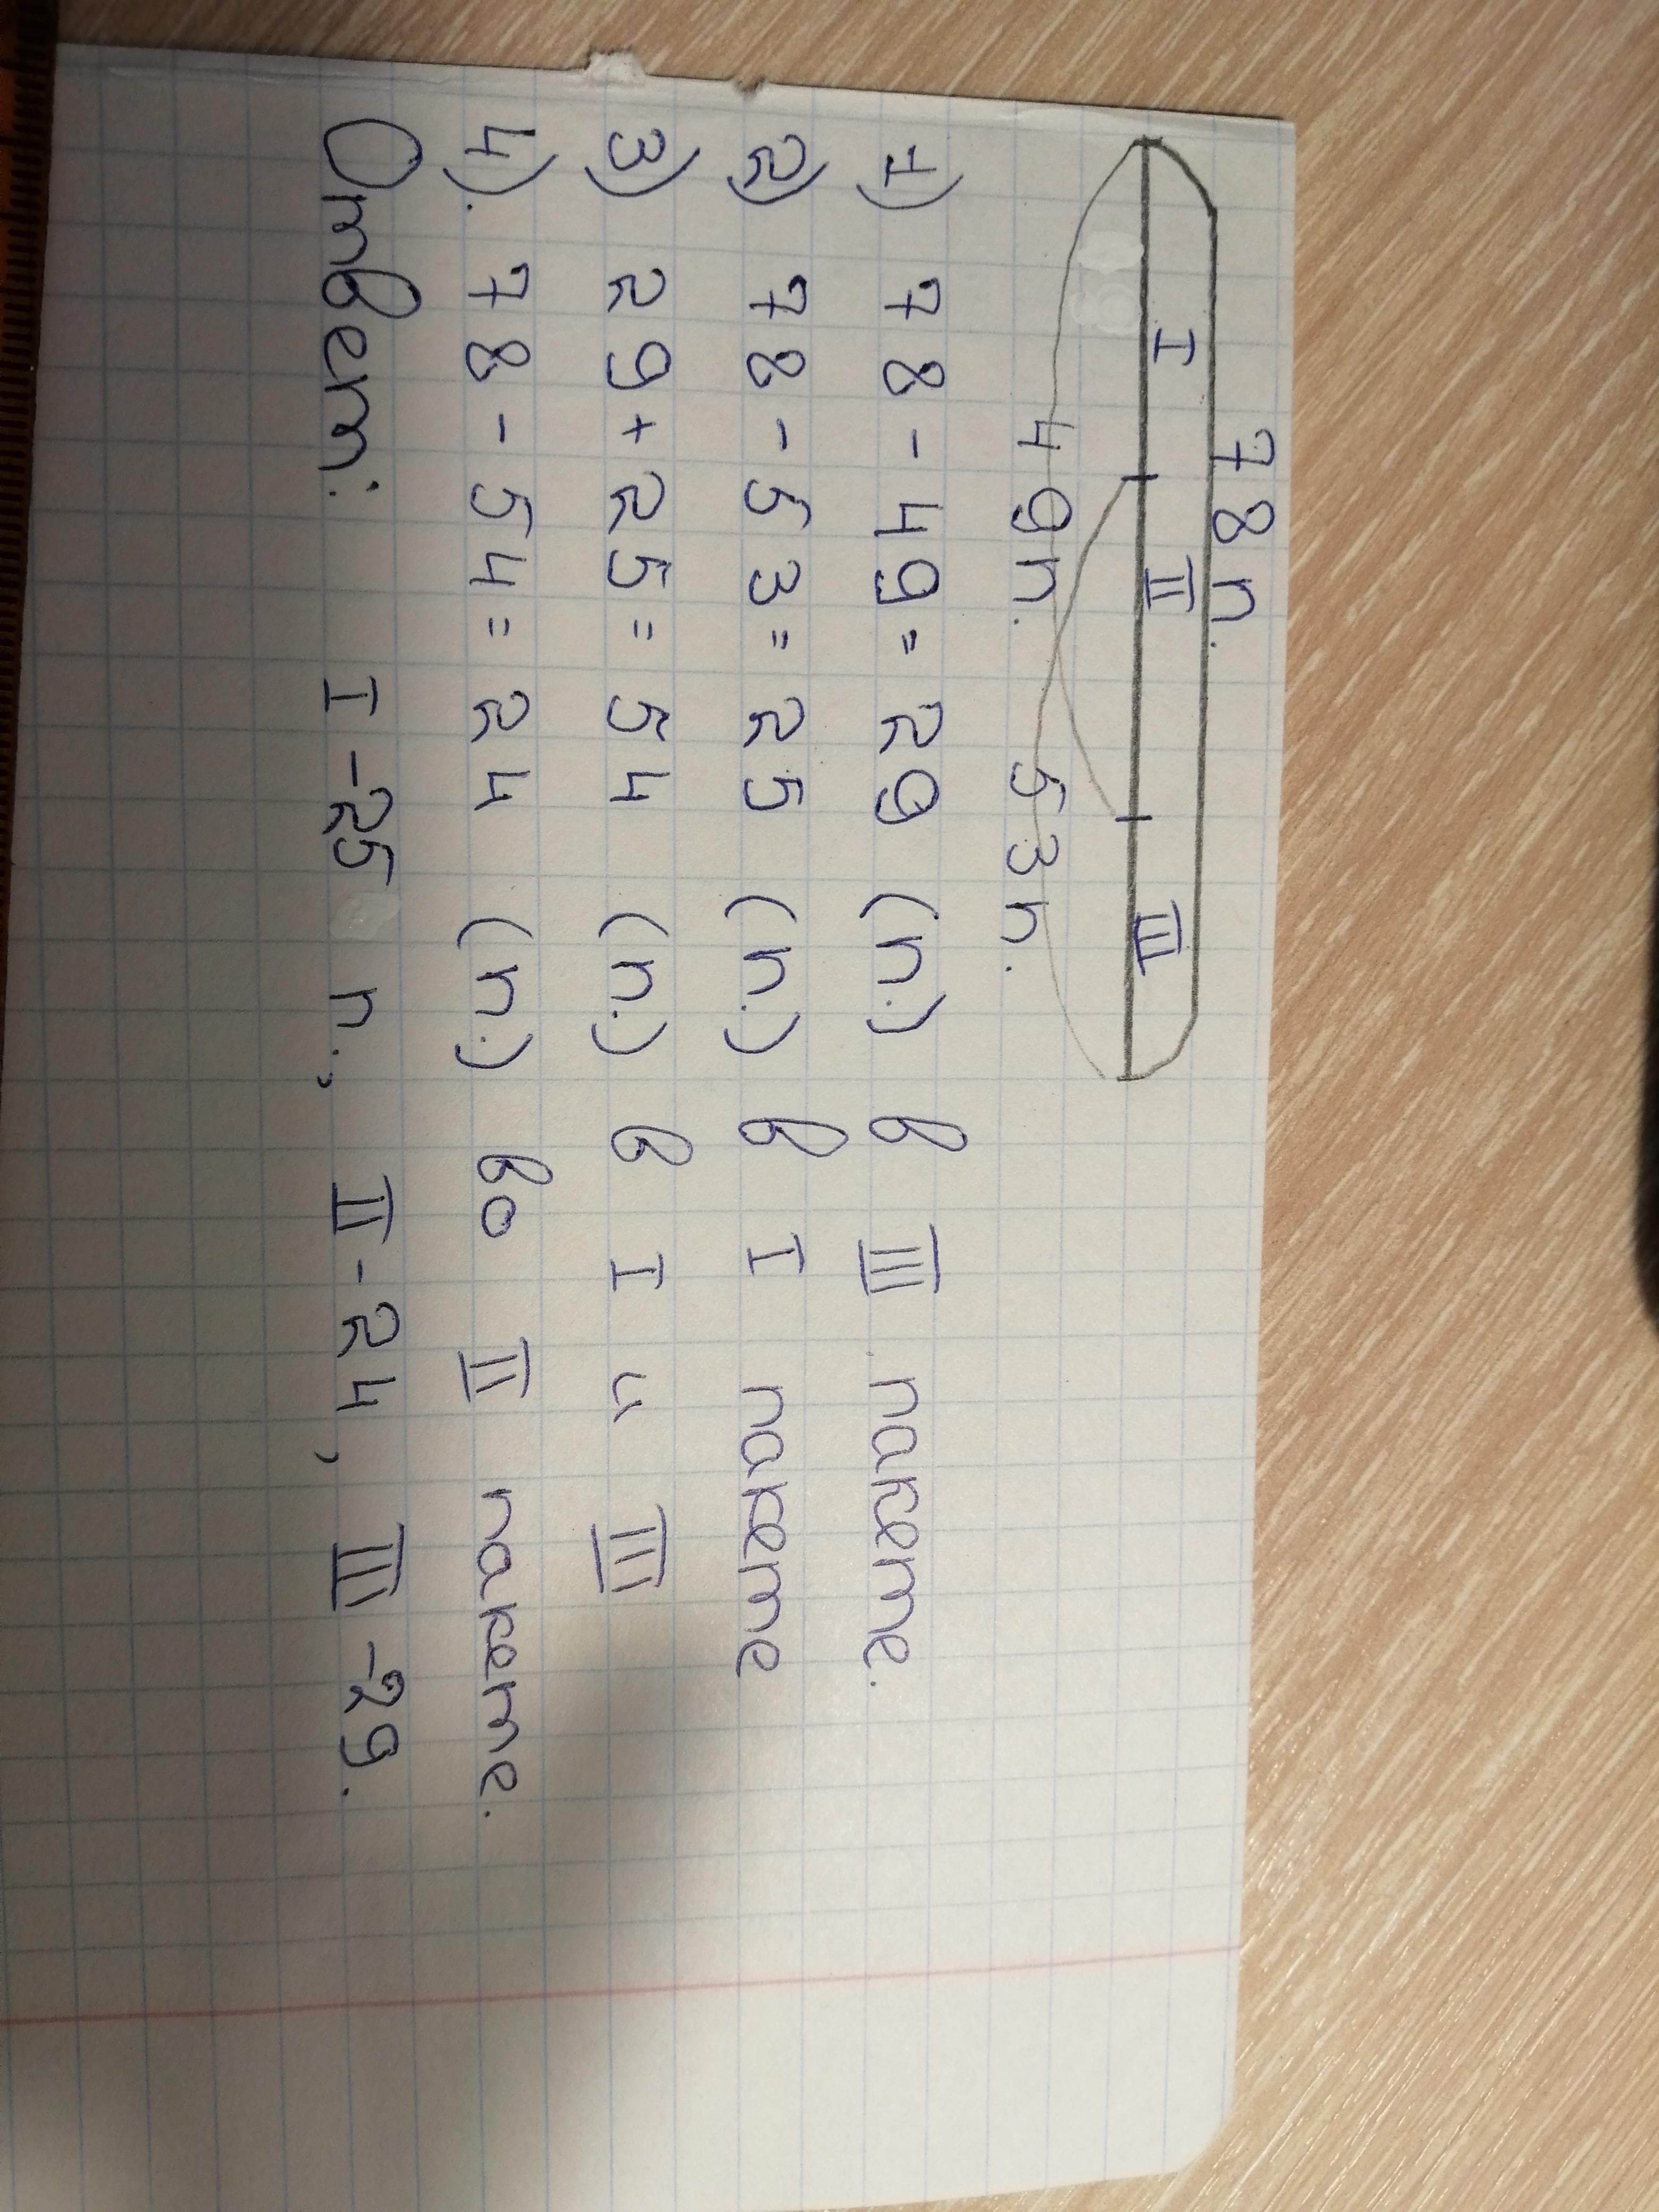 78 п.
I II III
49п. 53п.
1) 78 - 49 = 29 (п.) в III пакете.
2) 78 - 53 = 25 (п.) в I пакете
3) 29 + 25 = 54 (п.) в I и III
4). 78 - 54 = 24 (п.) во II пакете.
Ответ: I - 25 п., II - 24, III - 29.